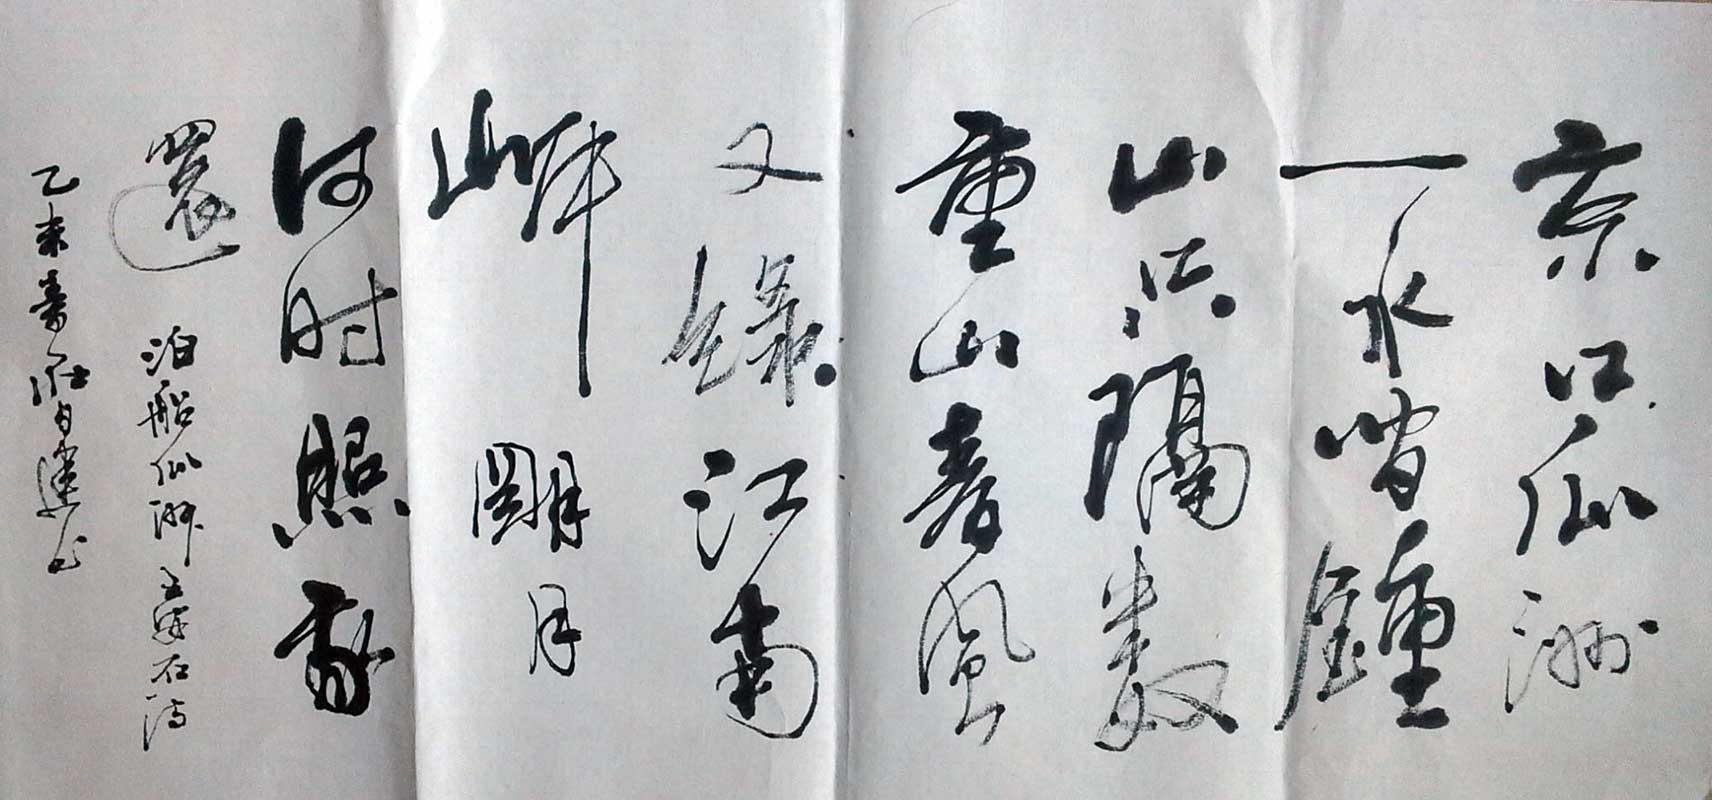 京口瓜洲
一水间鍾
山只隔数
重山春风
又绿江南
岸明月
何时照我
還 泊船瓜洲 王安石诗
乙未春月